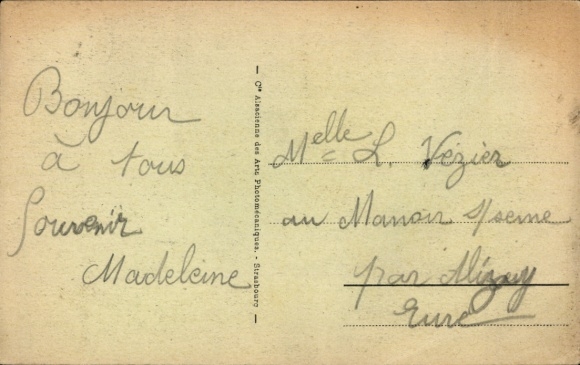 Bonjour
à tous
Souvenir
Madeleine
— Cie Alsacienne des Arts Photomécaniques. - Strasbourg —
Melle L. Vézier
au Manoir s/seine
par Alizay
Eure